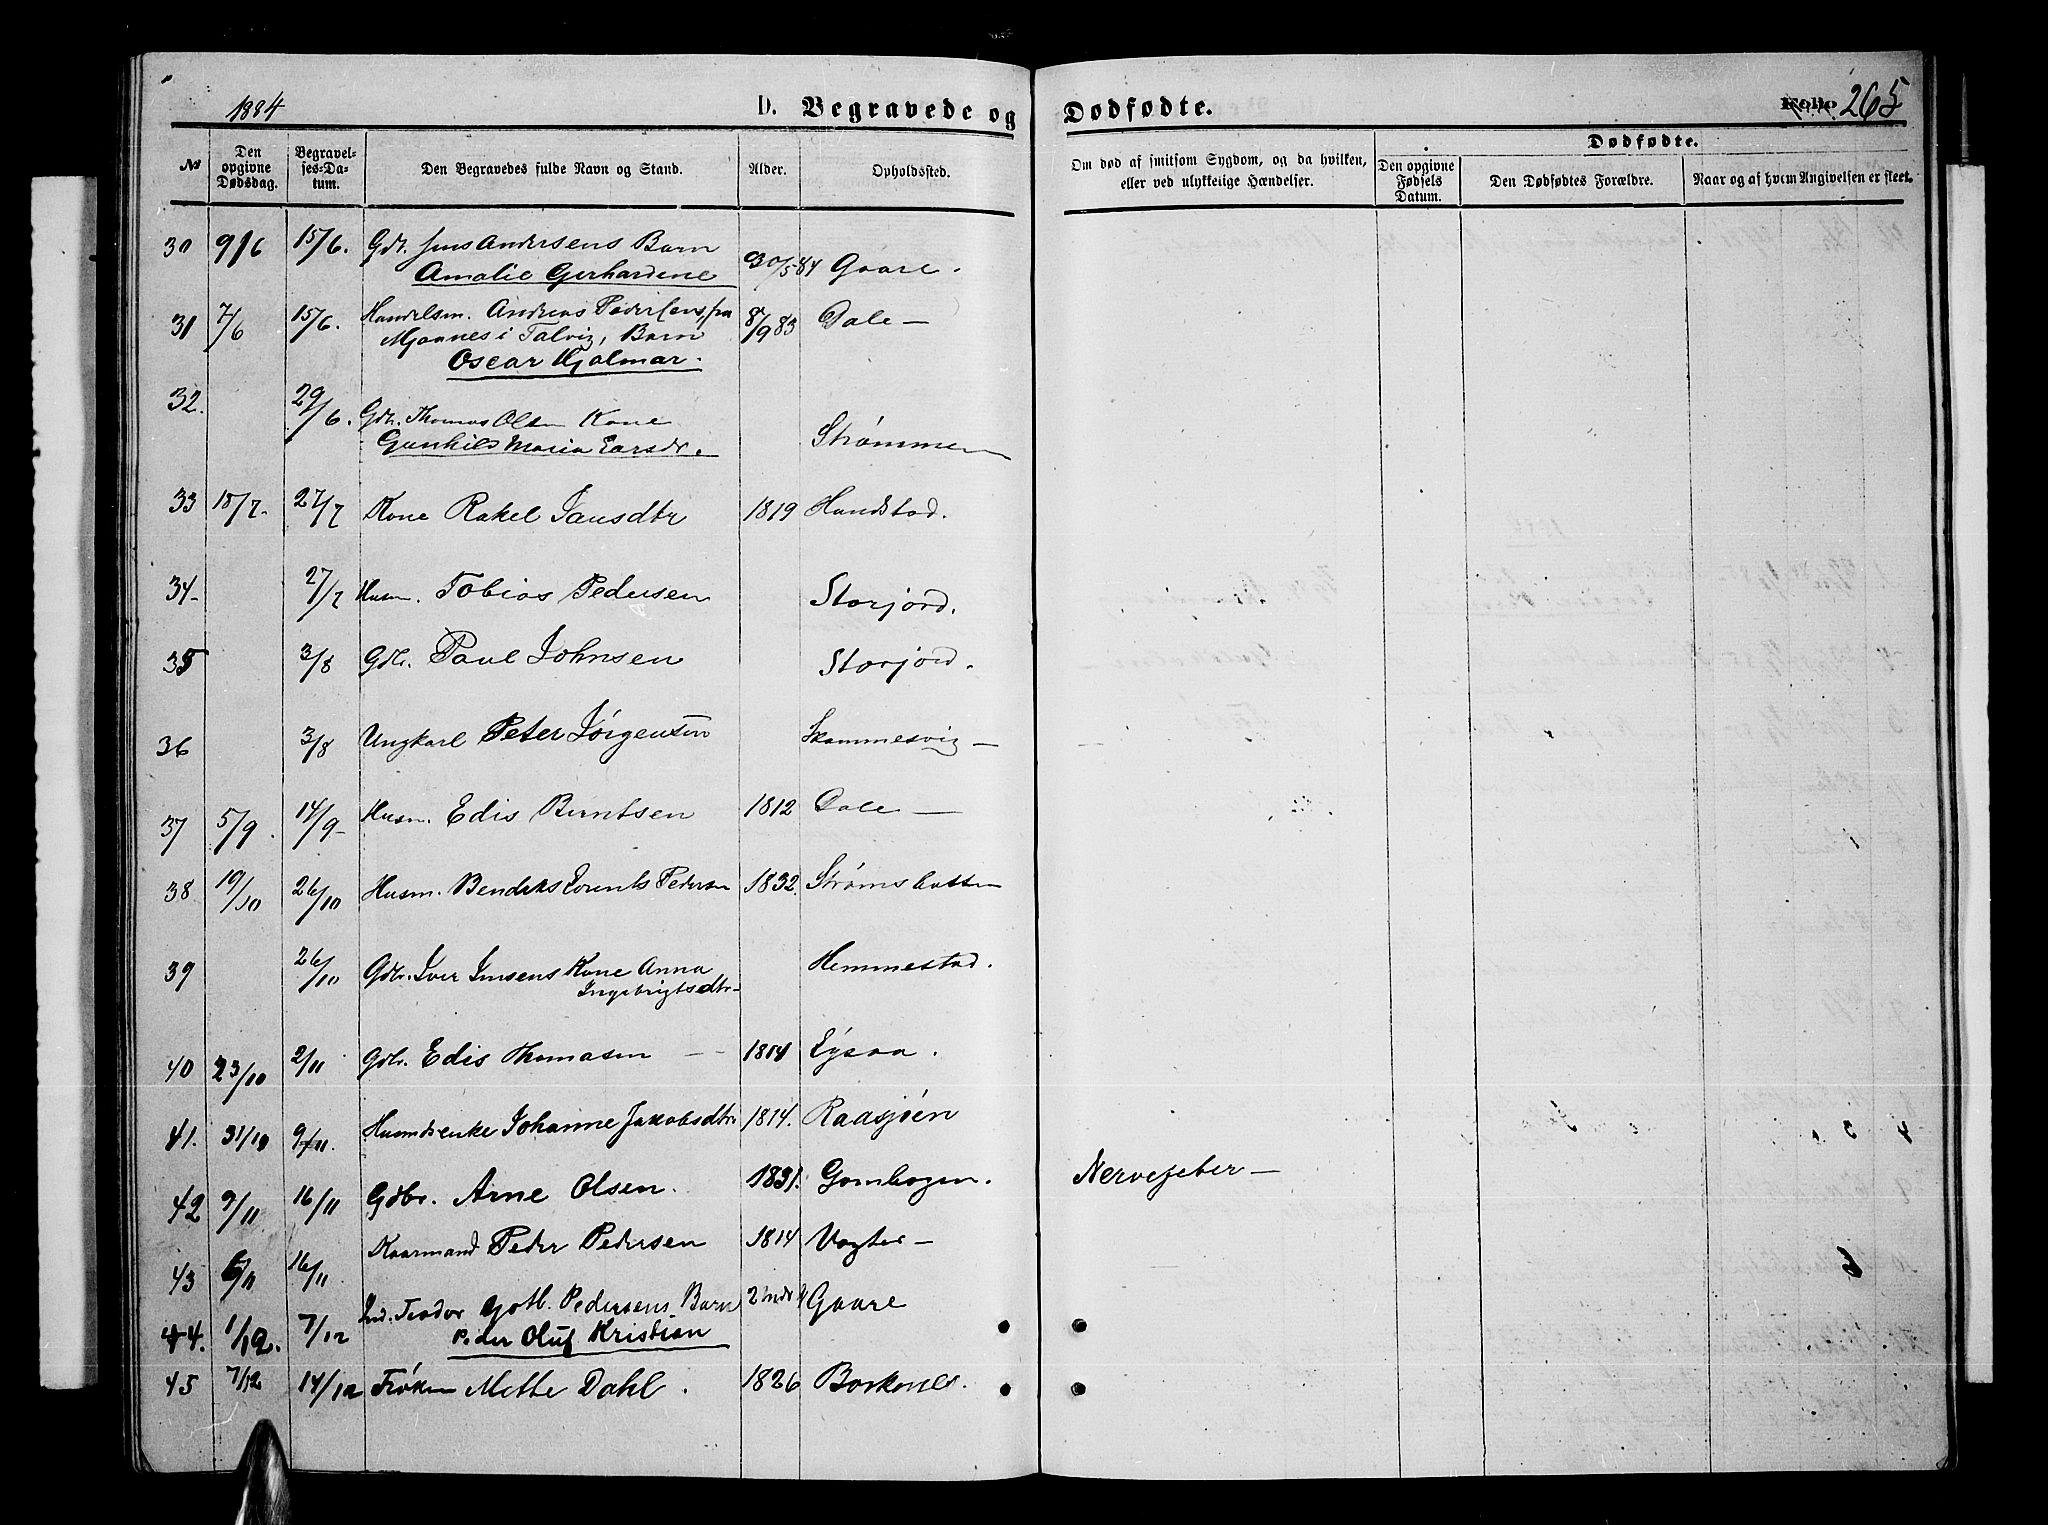 1884 D. Begravede og Dødfødte. Folio 265
№ Den opgivne Dødsdag. Begravelses-Datum. Den Begravedes fulde Navn og Stand. Alder. Opholdssted. Om død af smitsom Sygdom, og da hvilken, eller ved ulykkelige Hændelser. Dødfødte. Den opgivne Fødsels Datum. Den Dødfødtes Forældre. Naar og af hvem Angivelsen er skeet.
30 9/6 15/6. Gdb. Jens Andersens Barn
Amalie Gerhardine 30/5 84 Gaare.
31 7/6 15/6. Handelsm. Andreas Pedersens, fra 8/9 83 Dale –
Mjannes i Talvig, Barn
Oscar Hjalmar.
32. 29/6. Gdb. Thomas Olsen Kone
Gunhild Maria Larsdr. Strømmen
33 18/7. 27/7 Kone Rakel Jansdtr 1819 Handstad.
34- 27/7 Husm. Tobias Pedersen Storjord.
35 3/8 Gdb. Paul Johnsen Storjord.
36 3/8 Ungkarl Peter Jörgensen Skammesvig –
37 5/9. 14/9- Husm. Edis Berntsen 1812 Dale –
38 19/10 26/10 Husm. Bendiks Lorents Pedersen 1832. Strømsbotten
39 26/10 Gdbr. Iver Jensens Kone Anna
Ingebrigtsdtr- Hemmestad.
40 23/10 2/11 Gdb. Edis Thomasen – – 1814 Lysaa.
41. 31/10 9/11. Husmdsenke Johanne Jakobsdtr 1814. Raasjöen
42 9/11 16/11 Gdbr. Arne Olsen. 1831. Gombogen. Nervefeber –
43 6/11 16/11 Kaarmand Peder Pedersen 1814 Vogter –
44. 1/12. 7/12 Ind. Teodor Gotl. Pedersens Barn 2 mdr Gaare
Peder Oluf Kristian
45 7/12 14/12 Frøken Mette Dahl. 1826 Borkenes.